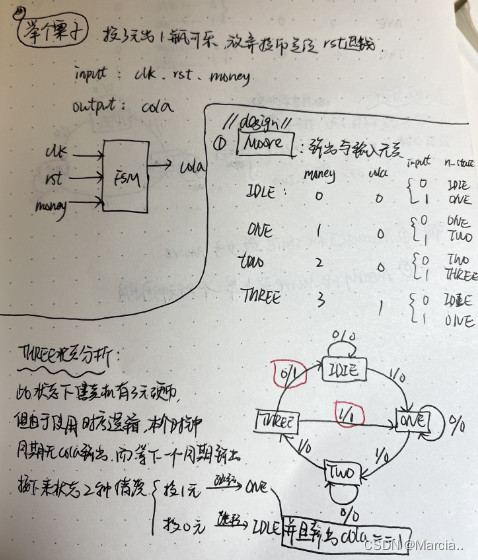 举个栗子 投3元出1瓶可乐, 放弃投币是按rst退钱.
input: clk. rst. money
output: cola
clk
rst
money
FSM
cola
//design//
① Moore : 输出与输入无关
money cola input n_state
IDLE: 0 0 { 0 IDLE
1 ONE
ONE 1 0 { 0 ONE
1 TWO
TWO 2 0 { 0 TWO
1 THREE
THREE 3 1 { 0 IDLE
1 ONE
THREE状态分析:
此状态下建立机有3元硬币,
但由于使用时序逻辑, 本个时钟
周期无cola输出, 而等下一个周期输出
接下来状态2种情况 { 投1元 跳转 ONE
投0元 跳转 IDLE 并且输出cola==1
0/0
IDLE
0/1
1/0
THREE
1/1
ONE
0/0
1/0
1/0
TWO
0/0
CSDN @Marcia..